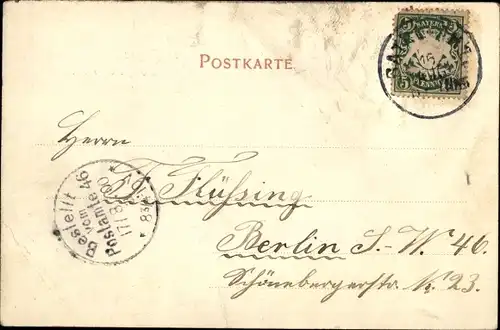 POSTKARTE.
BAYERN
Herrn
F. Flüssing
Berlin S.-W. 46.
Schönebergerstr. № 23.
Bestellt
vom
Postamte 46
17/8 00